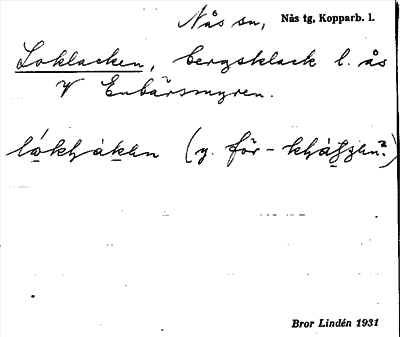 Nås sn, Nås tg, Kopparb. l.
Loklacken, bergsklack l. ås
V Enbärsmyren.
(y. för -
Bror Lindén 1931